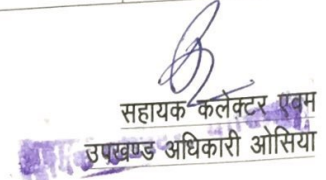 सहायक कलेक्टर एवम
उपखण्ड अधिकारी ओसिया